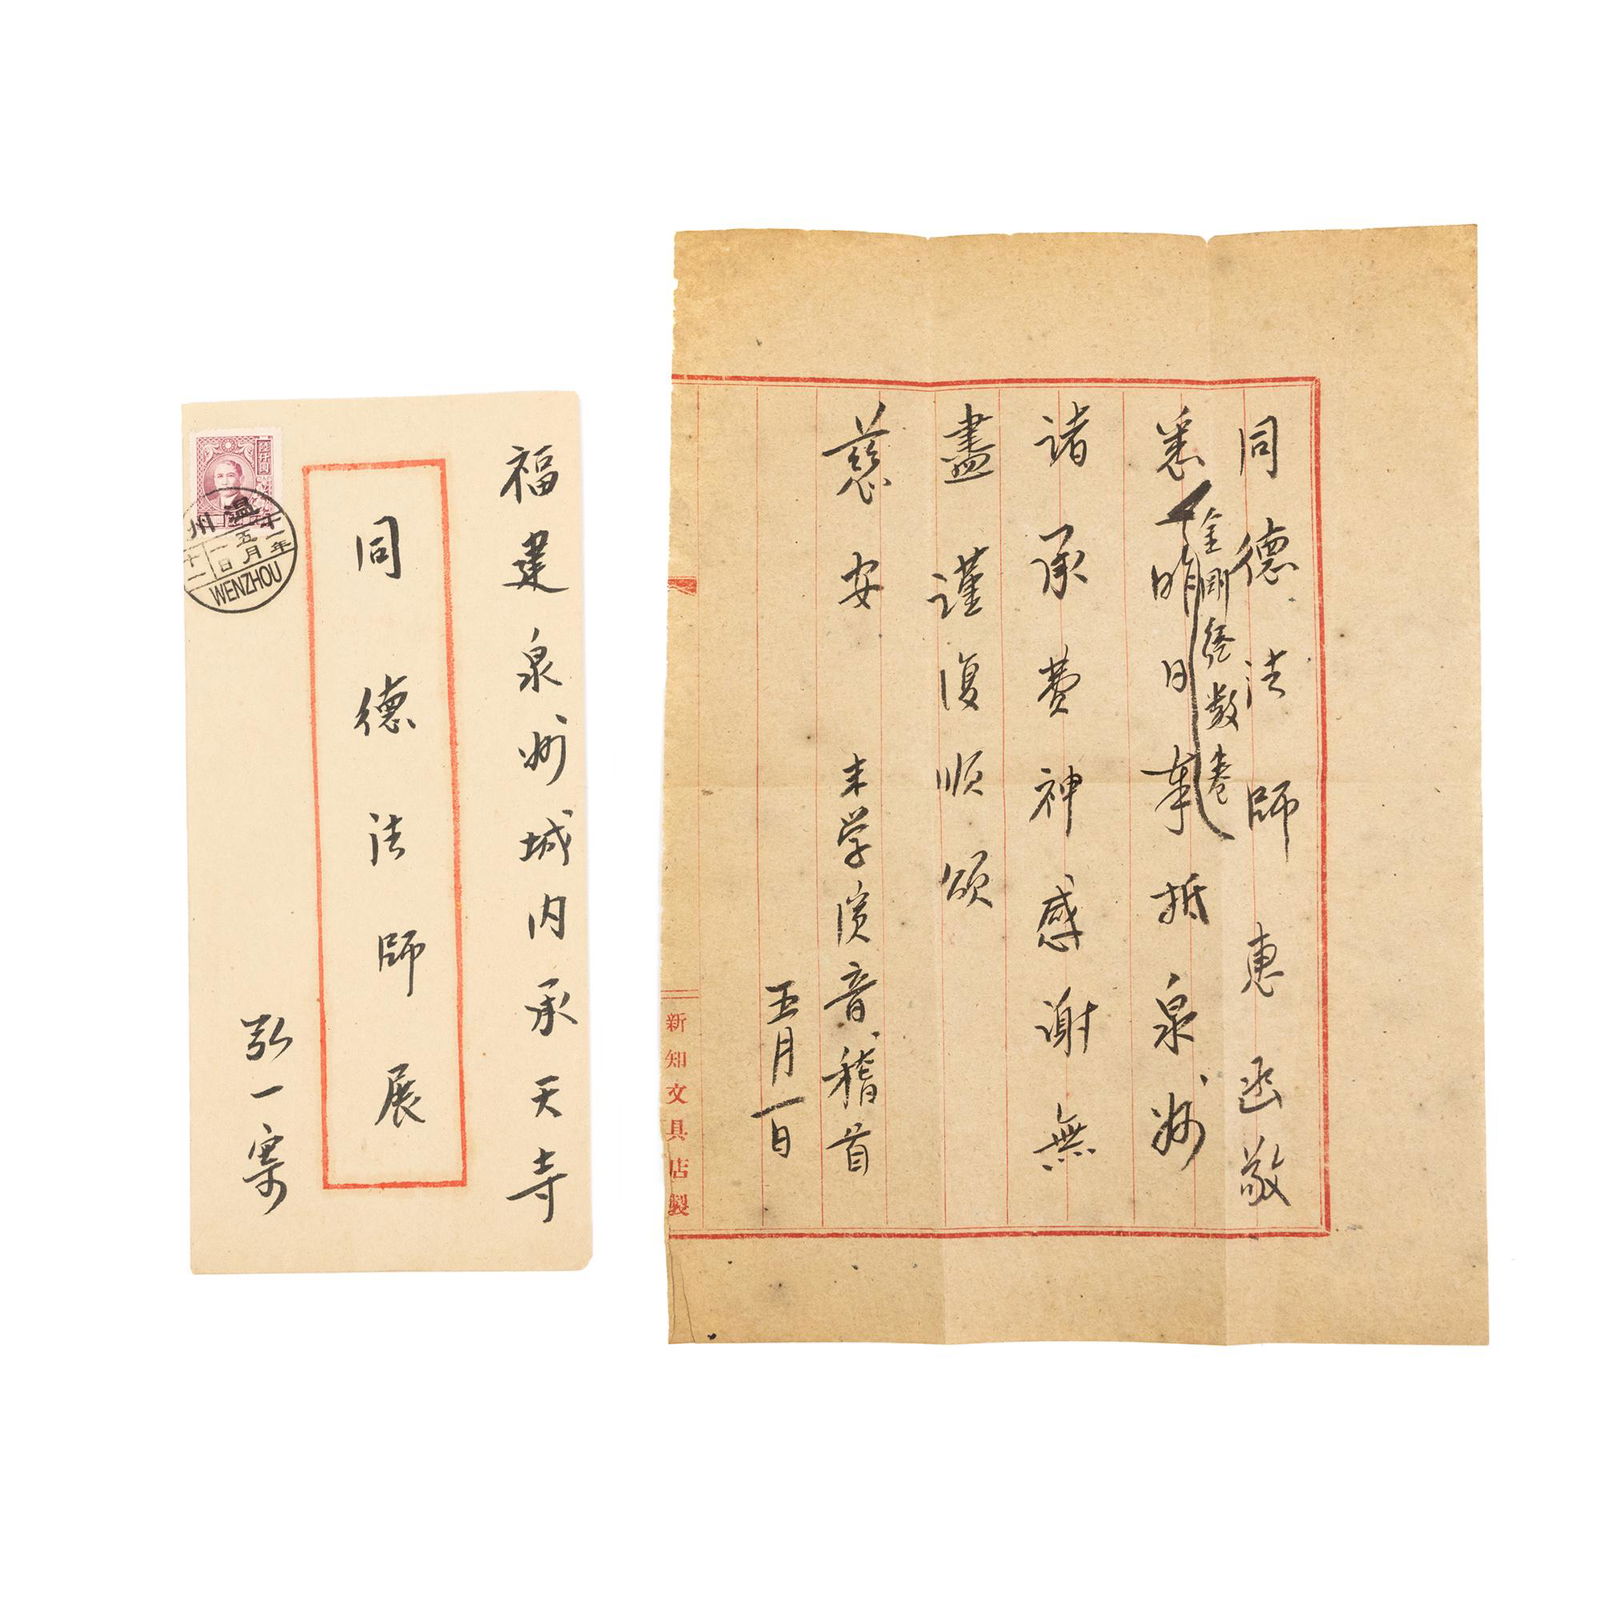 福建泉州城内承天寺
同德法師展
弘一寄
温州
十一年
五月
一日
十一
WENZHOU
同德法師惠函敬
悉昨日奉抵泉州
金剛經數卷
諸承費神感謝無
盡謹復順頌
慈安
末学演音稽首
五月一日
新知文具店製